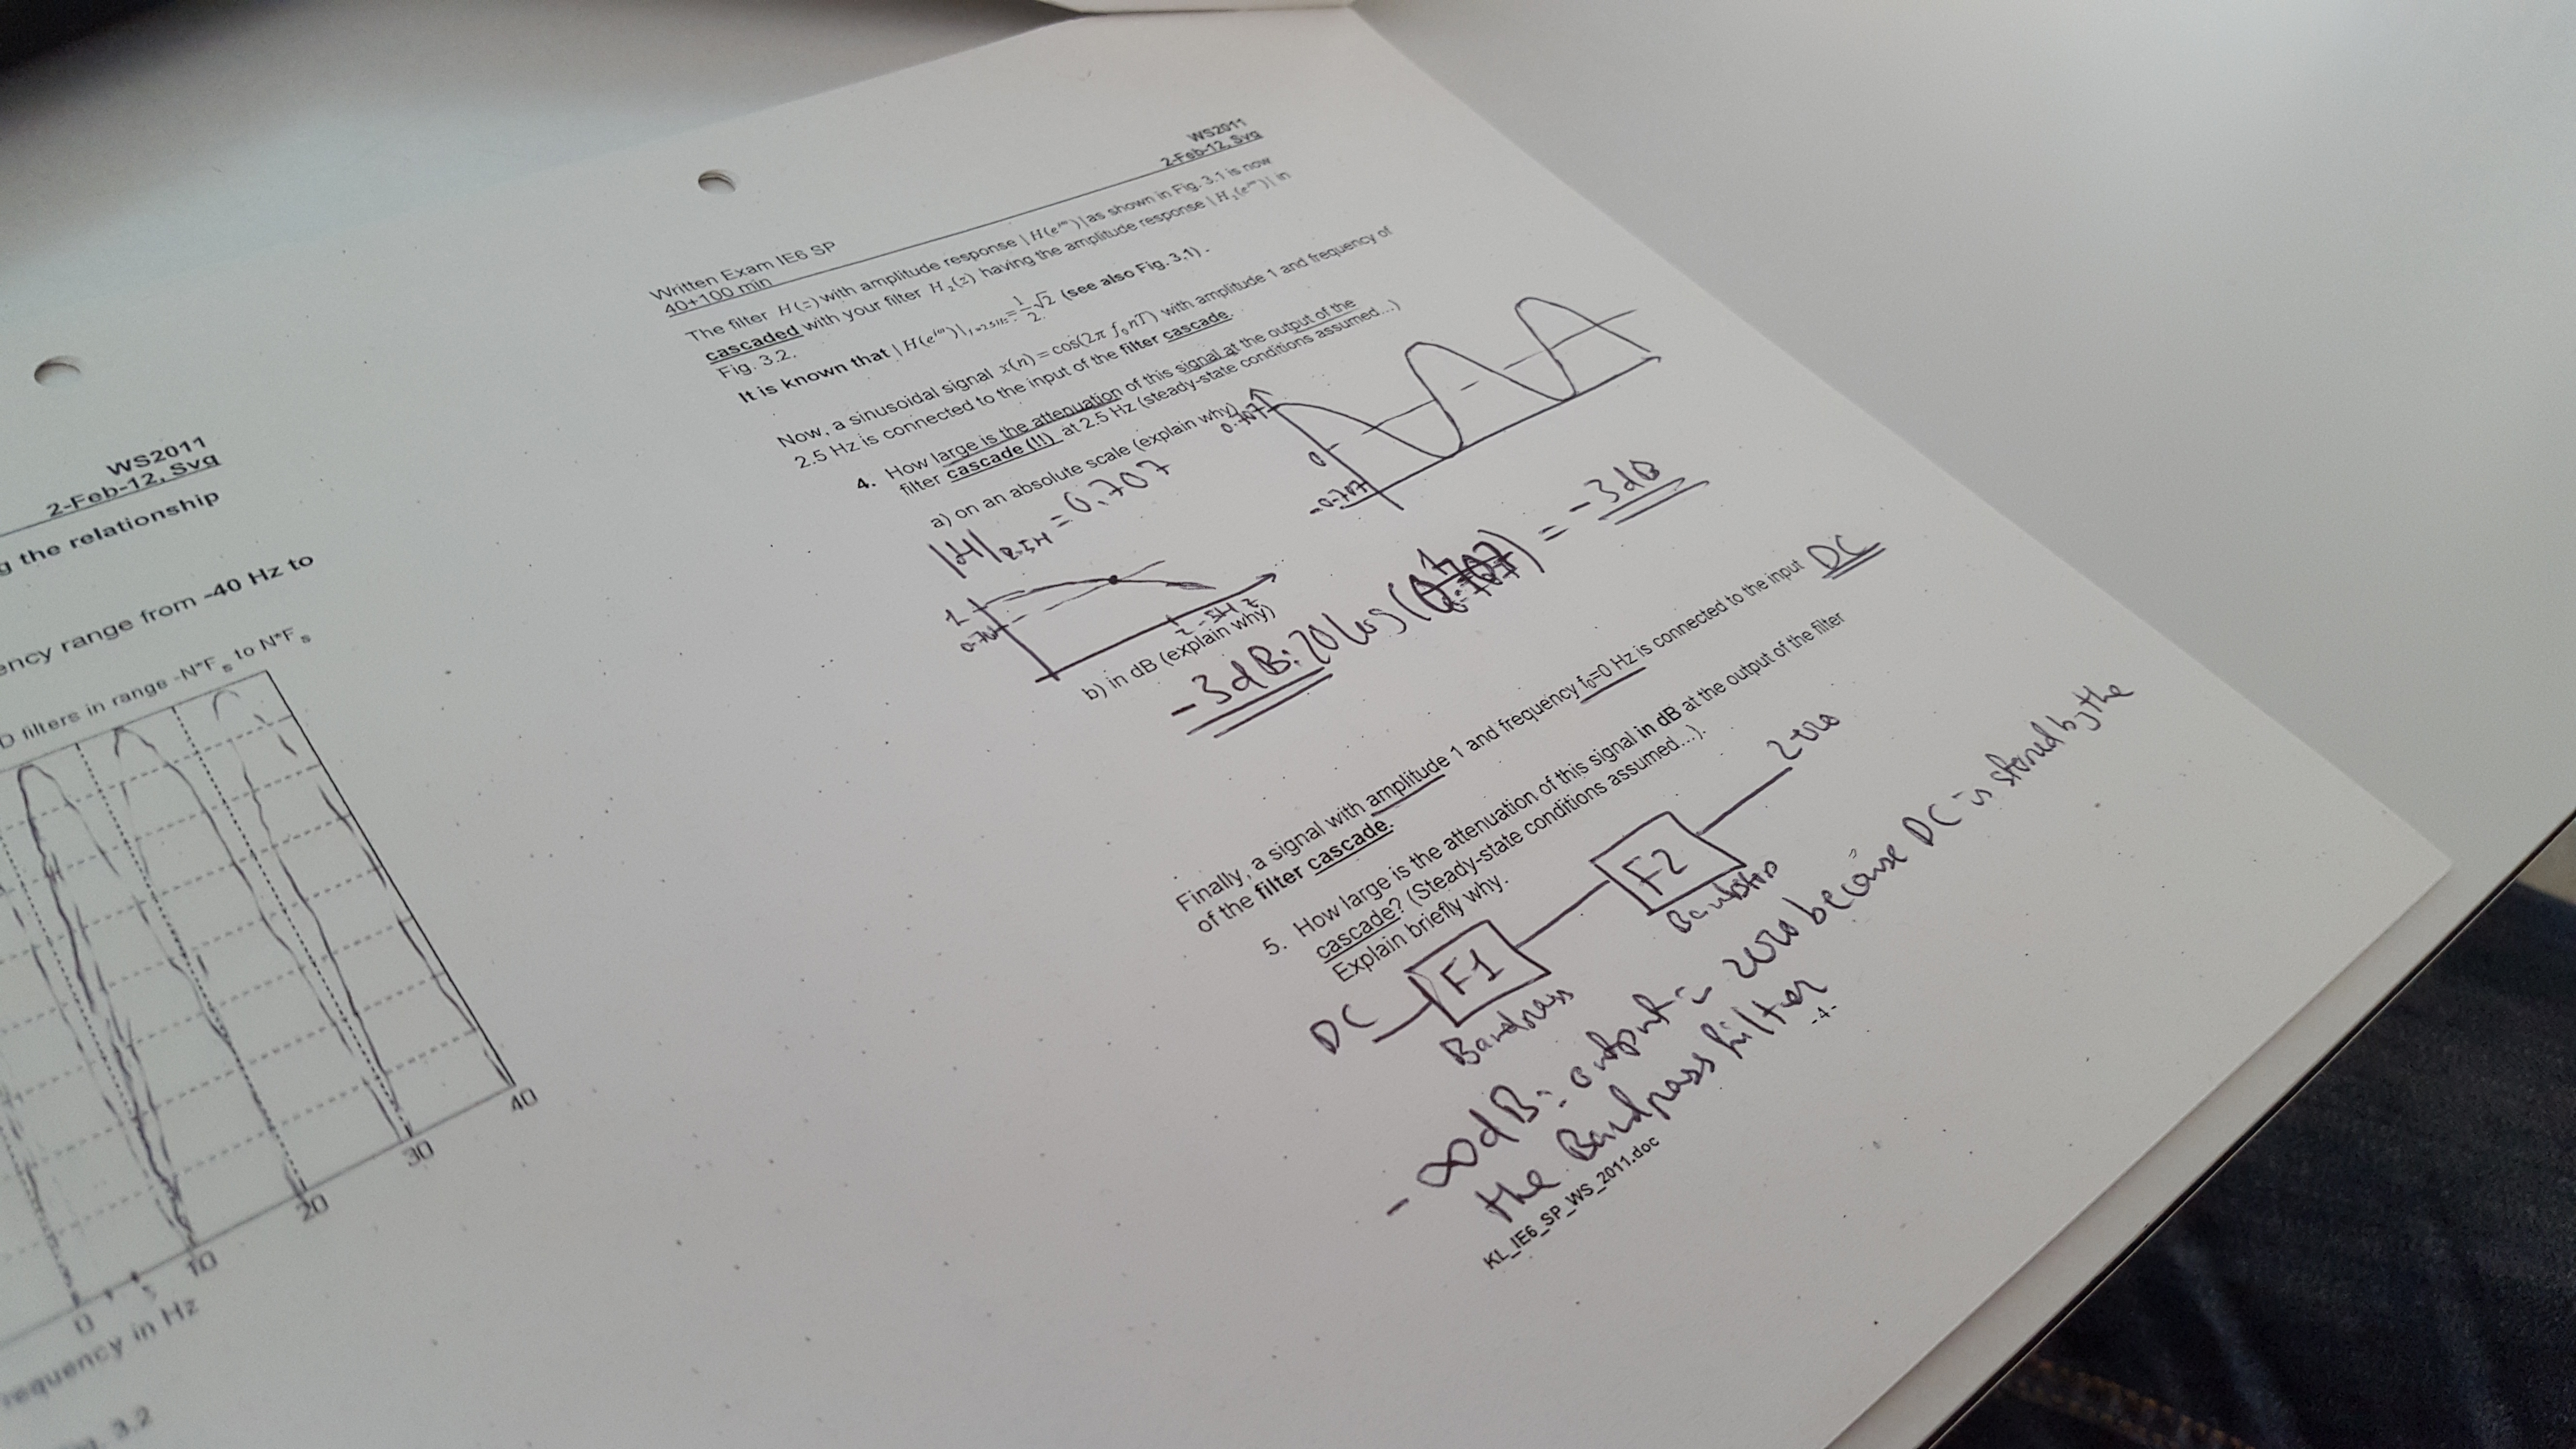 WS2011
2-Feb-12, Svg
g the relationship
ency range from -40 Hz to
D filters in range -N*Fs to N*Fs
0
10
20
30
40
requency in Hz
3.2
WS2011
2-Feb-12, Svg
Written Exam IE6 SP
40+100 min
The filter H(z) with amplitude response |H(e^jω)| as shown in Fig. 3.1 is now
cascaded with your filter H₂(z) having the amplitude response |H₂(e^jω)| in
Fig. 3.2.
It is known that |H(e^jω)|f=2.5Hz = 1/2 √2 (see also Fig. 3.1).
Now, a sinusoidal signal x(n) = cos(2π f₀ nT) with amplitude 1 and frequency of
2.5 Hz is connected to the input of the filter cascade.
4. How large is the attenuation of this signal at the output of the
filter cascade (!!) at 2.5 Hz (steady-state conditions assumed...)
a) on an absolute scale (explain why)
0.707
0
-0.707
|H|2.5H = 0.707
1
0.707
2.5Hz
b) in dB (explain why)
-3dB: 20 log( ) = -3dB
Finally, a signal with amplitude 1 and frequency f₀=0 Hz is connected to the input DC
of the filter cascade.
5. How large is the attenuation of this signal in dB at the output of the filter
cascade? (Steady-state conditions assumed...).
Explain briefly why.
DC F1 F2 zero
Bandpass
-∞dB: output = zero because DC is by the
the Bandpass filter
-4-
KL_IE6_SP_WS_2011.doc